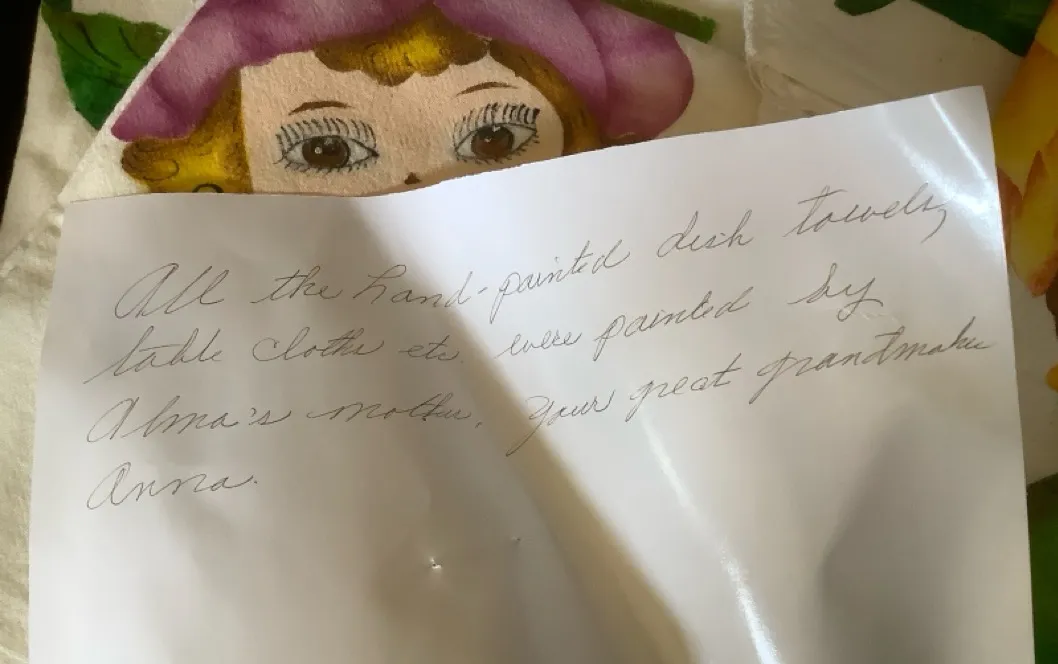 All the hand-painted dish towels,
table cloths etc. were painted by
Alma's mother, your great grandmother
Anna.